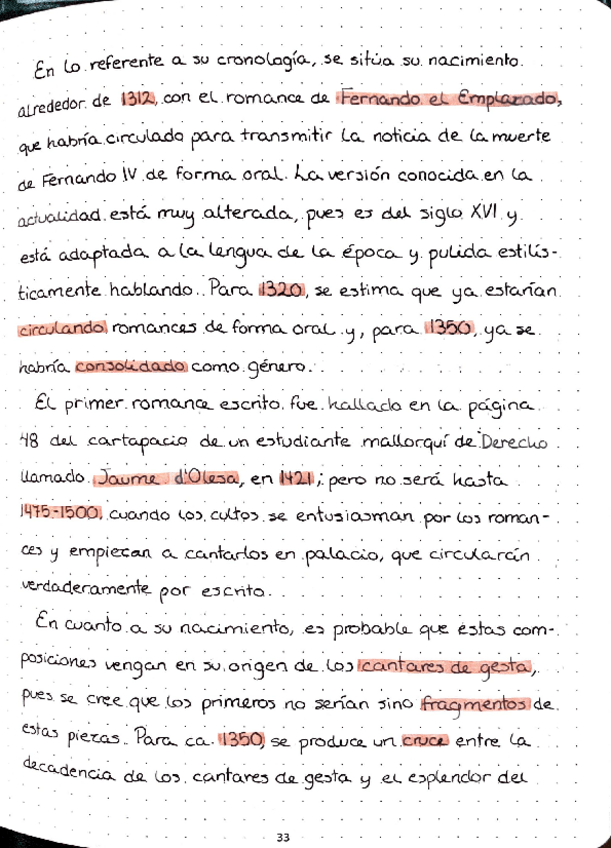 En lo referente a su cronología, se sitúa su nacimiento
alrededor de 1312, con el romance de Fernando el Emplazado,
que habría circulado para transmitir la noticia de la muerte
de Fernando IV de forma oral. La versión conocida en la
actualidad está muy alterada, pues es del siglo XVI y
está adaptada a la lengua de la época y pulida estilís-
ticamente hablando. Para 1320, se estima que ya estarían
circulando romances de forma oral y, para 1350, ya se
habría consolidado como género.
El primer romance escrito fue hallado en la página
48 del cartapacio de un estudiante mallorquí de Derecho
llamado Jaume d'Olesa, en 1421; pero no será hasta
1475-1500, cuando los cultos se entusiasman por los roman-
ces y empiezan a cantarlos en palacio, que circularán
verdaderamente por escrito.
En cuanto a su nacimiento, es probable que estas com-
posiciones vengan en su origen de los cantares de gesta,
pues se cree que los primeros no serían sino fragmentos de
estas piezas. Para ca. 1350, se produce un cruce entre la
decadencia de los cantares de gesta y el esplendor del
33